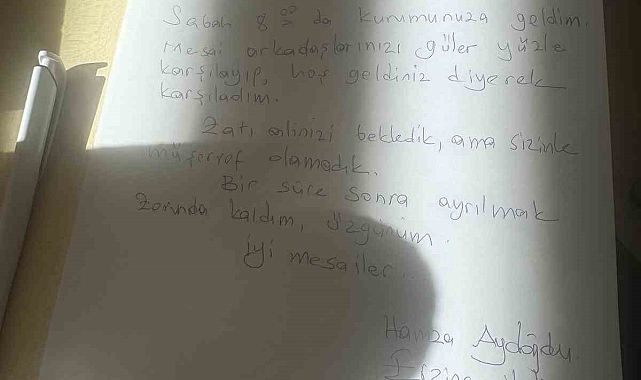 Sabah 8 00 da kurumunuza geldim.
Mesai arkadaşlarınızı güler yüzle
karşılayıp, hoş geldiniz diyerek
karşıladım.
Zatı alinizi bekledik, ama sizinle
müşerref olamadık.
Bir süre sonra ayrılmak
zorunda kaldım, üzgünüm.
iyi mesailer...
Hamza Aydoğdu